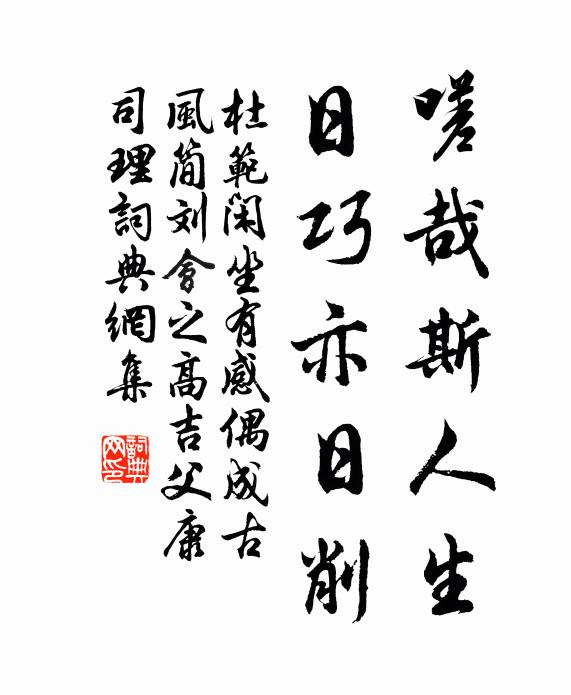 嗟哉斯人生
日巧亦日削
杜範閑坐有感偶成古
風簡刘會之高吉父康
司理詞典網集
詞典网印